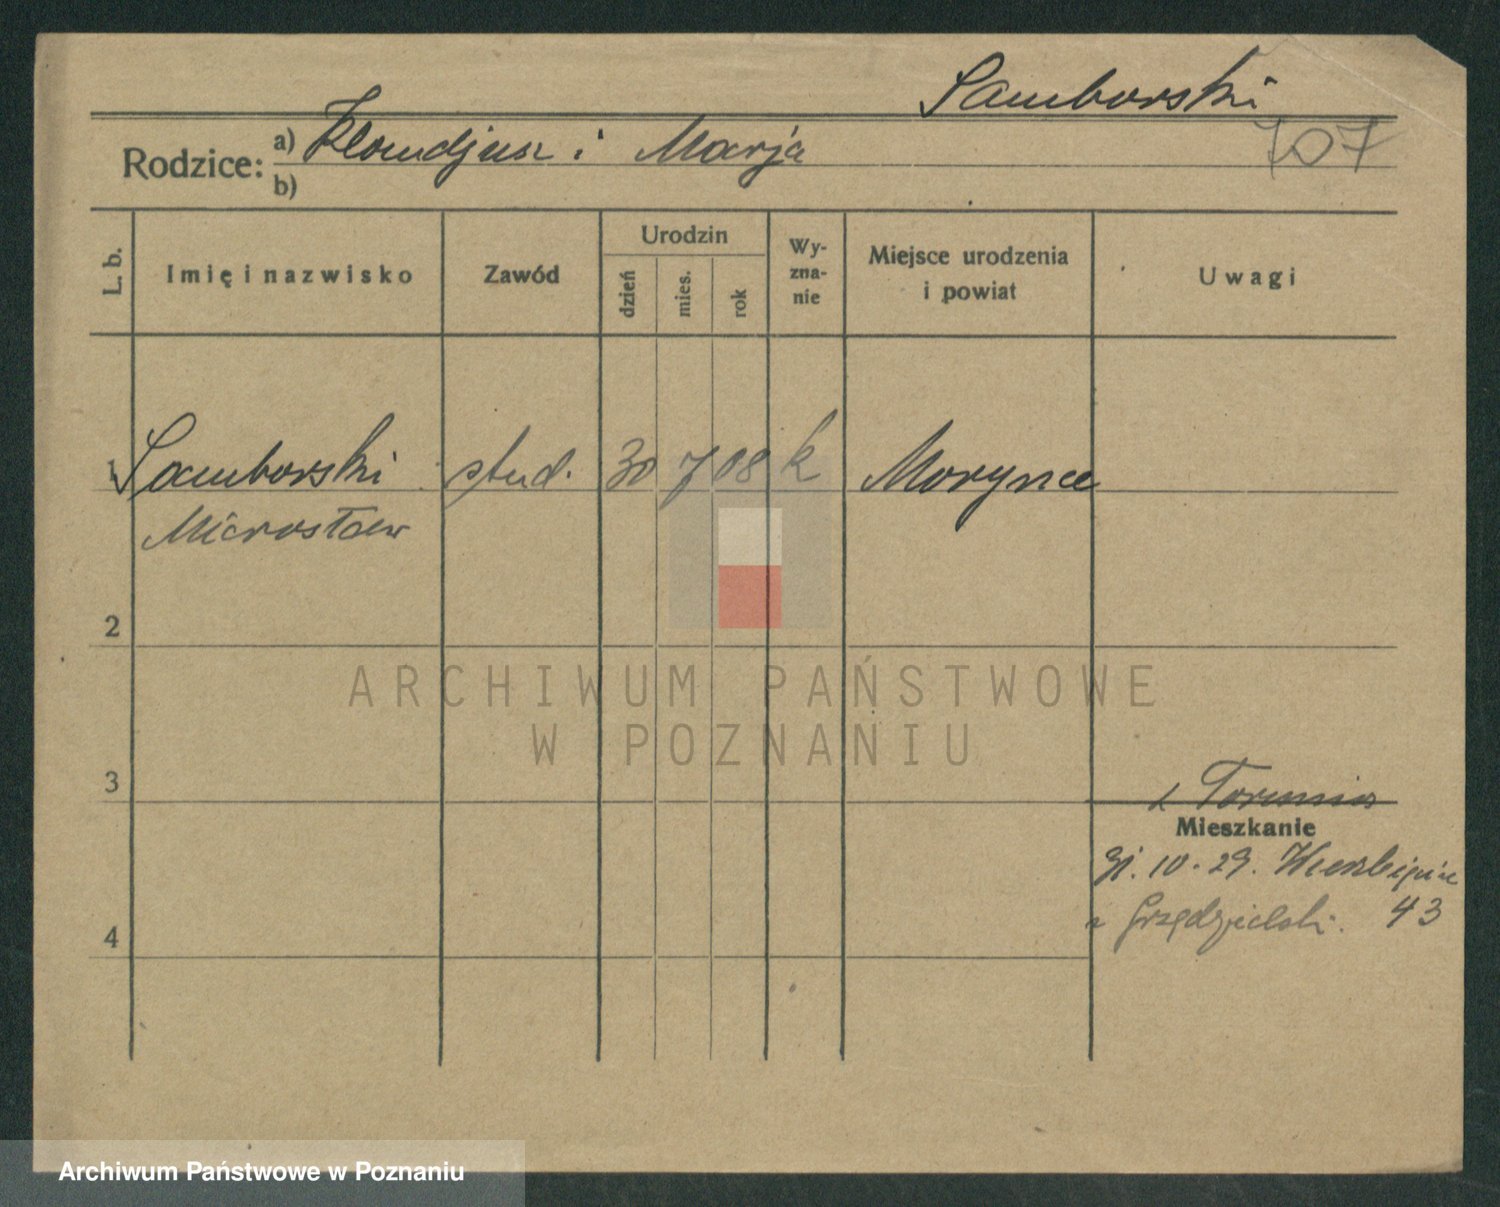 Samborski
707
Rodzice: a) Klaudjusz i Marja
b)
L. b.
Imię i nazwisko
Zawód
Urodzin
dzień
mies.
rok
Wy-
zna-
nie
Miejsce urodzenia
i powiat
Uwagi
1 Samborski stud. 30 7 08 k Morynce
Mirosław
2
3
z Torunia
Mieszkanie
31.10.29. Wierzbięcice
43
4
ARCHIWUM PAŃSTWOWE
W POZNANIU
Archiwum Państwowe w Poznaniu